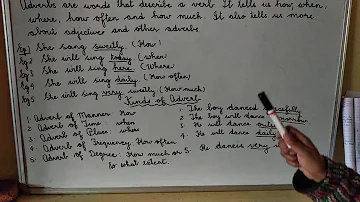 Adverbs are words that describe a verb. It tells us how, when,
where, how often and how much. It also tells us more
about adjectives and other adverbs
Eg1 She sang sweetly. (How)
Eg2 She will sing today. (when)
Eg3 She will sing here. (Where)
Eg4 She will sing daily. (How often)
Eg5 She will sing very sweetly (How much)
Kinds of Adverb
1. Adverb of Manner: How
2. Adverb of Time: when
3. Adverb of Place: where
4. Adverb of Frequency: How often
5. Adverb of Degree: How much or
to what extent.
1. The boy danced
2. The boy will dance
3. He will dance
4. He will dance daily
5. He dances very